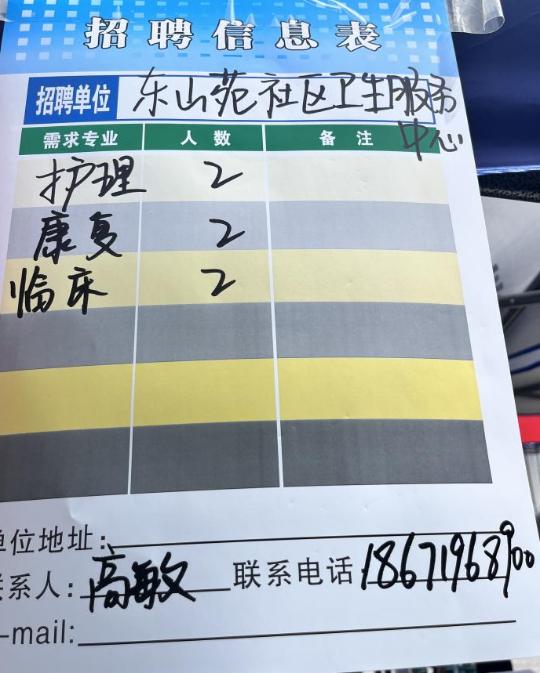 招聘信息表
招聘单位 东山苑社区卫生服务中心
需求专业 人数 备注
护理 2
康复 2
临床 2
单位地址:
联系人: 高敏 联系电话 18671968900
-mail: